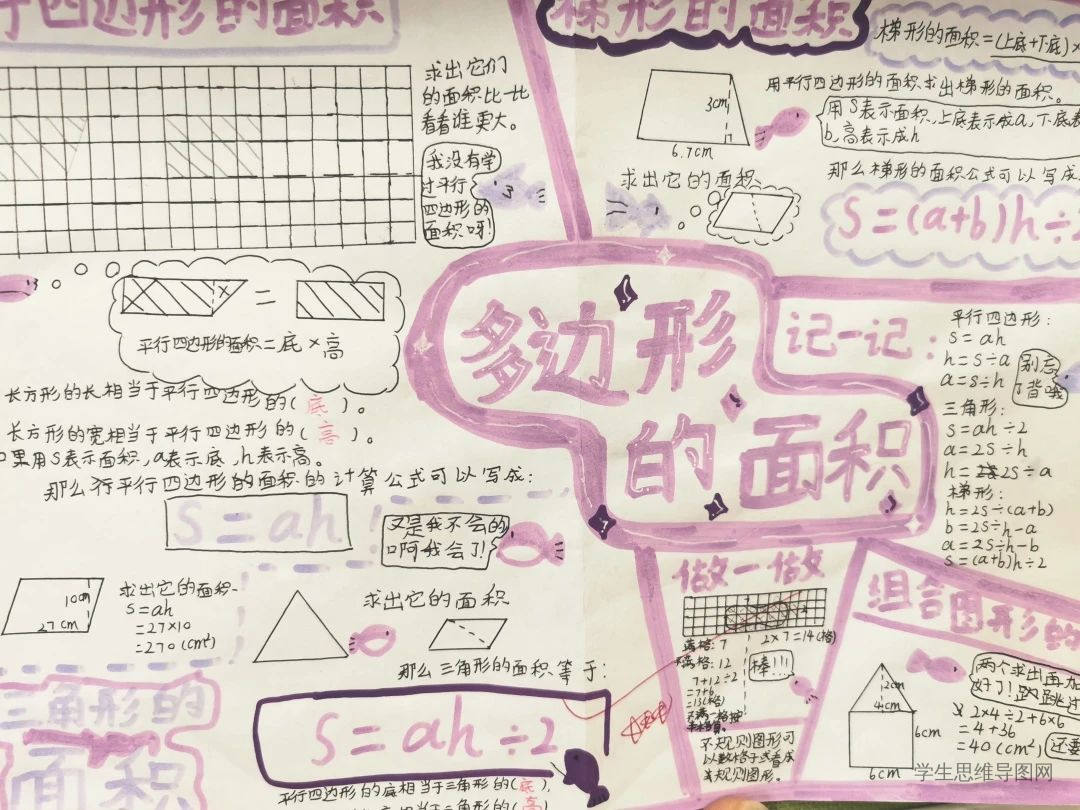 四边形的面积
求出它们
的面积比一比
看看谁更大。
我没有学
过平行
四边形的
面积呀!
=
平行四边形的面积=底×高
长方形的长相当于平行四边形的(底)。
长方形的宽相当于平行四边形的(高)。
里用S表示面积,a表示底,h表示高。
那么平行四边形的面积的计算公式可以写成:
S=ah!
又是我不会的
啊我会了!
10cm
27cm
求出它的面积
S=ah
=27×10
=270(cm²)
求出它的面积
那么三角形的面积等于:
S=ah÷2
三角形的
面积
平行四边形的底相当于三角形的(底),
相当于三角形的(高)
梯形的面积
梯形的面积=(上底+下底)×
3cm
6.7cm
用平行四边形的面积求出梯形的面积。
用S表示面积,上底表示成a,下底表
b,高表示成h
求出它的面积
那么梯形的面积公式可以写成
S=(a+b)h÷2
多边形
的面积
记一记:
平行四边形:
S=ah
h=S÷a
a=S÷h
别忘
了背哦
三角形:
S=ah÷2
a=2S÷h
h=2S÷a
梯形:
h=2S÷(a+b)
b=2S÷h-a
a=2S÷h-b
S=(a+b)h÷2
做一做
2×7=14(格)
满格:7
满格:12
7+12÷2
=7+6
=13(格)
棒!!!
不规则图形可
以数格子或看成
规则图形。
组合图形的
两个求出再加
好了!
2cm
4cm
6cm
6cm
2×4÷2+6×6
=4+36
=40(cm²)
还要
学生思维导图网